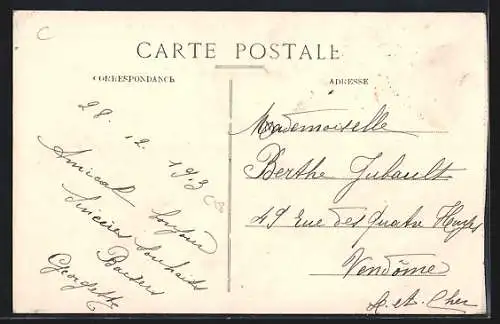 C
CARTE POSTALE
CORRESPONDANCE
ADRESSE
28. 12. 193
Amical bonjour
Sincères souhaits
Baisers
Georgette
Mademoiselle
Berthe Jubault
49 Rue des Quatre Huyes
Vendôme
L. et. Cher